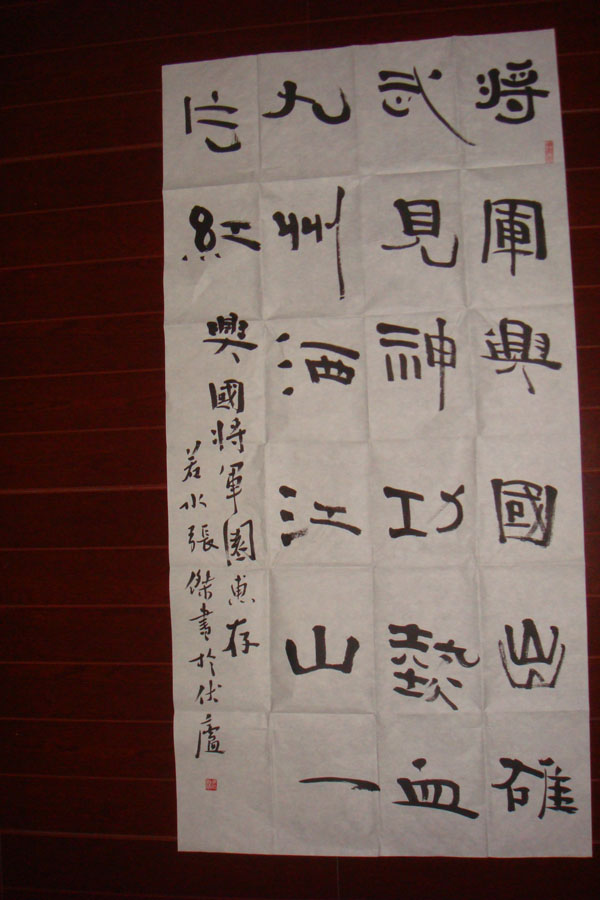 将軍興國出雄
武見神功熱血
九州洒江山一
片紅
興國将軍園惠存
若水張傑書於伏廬